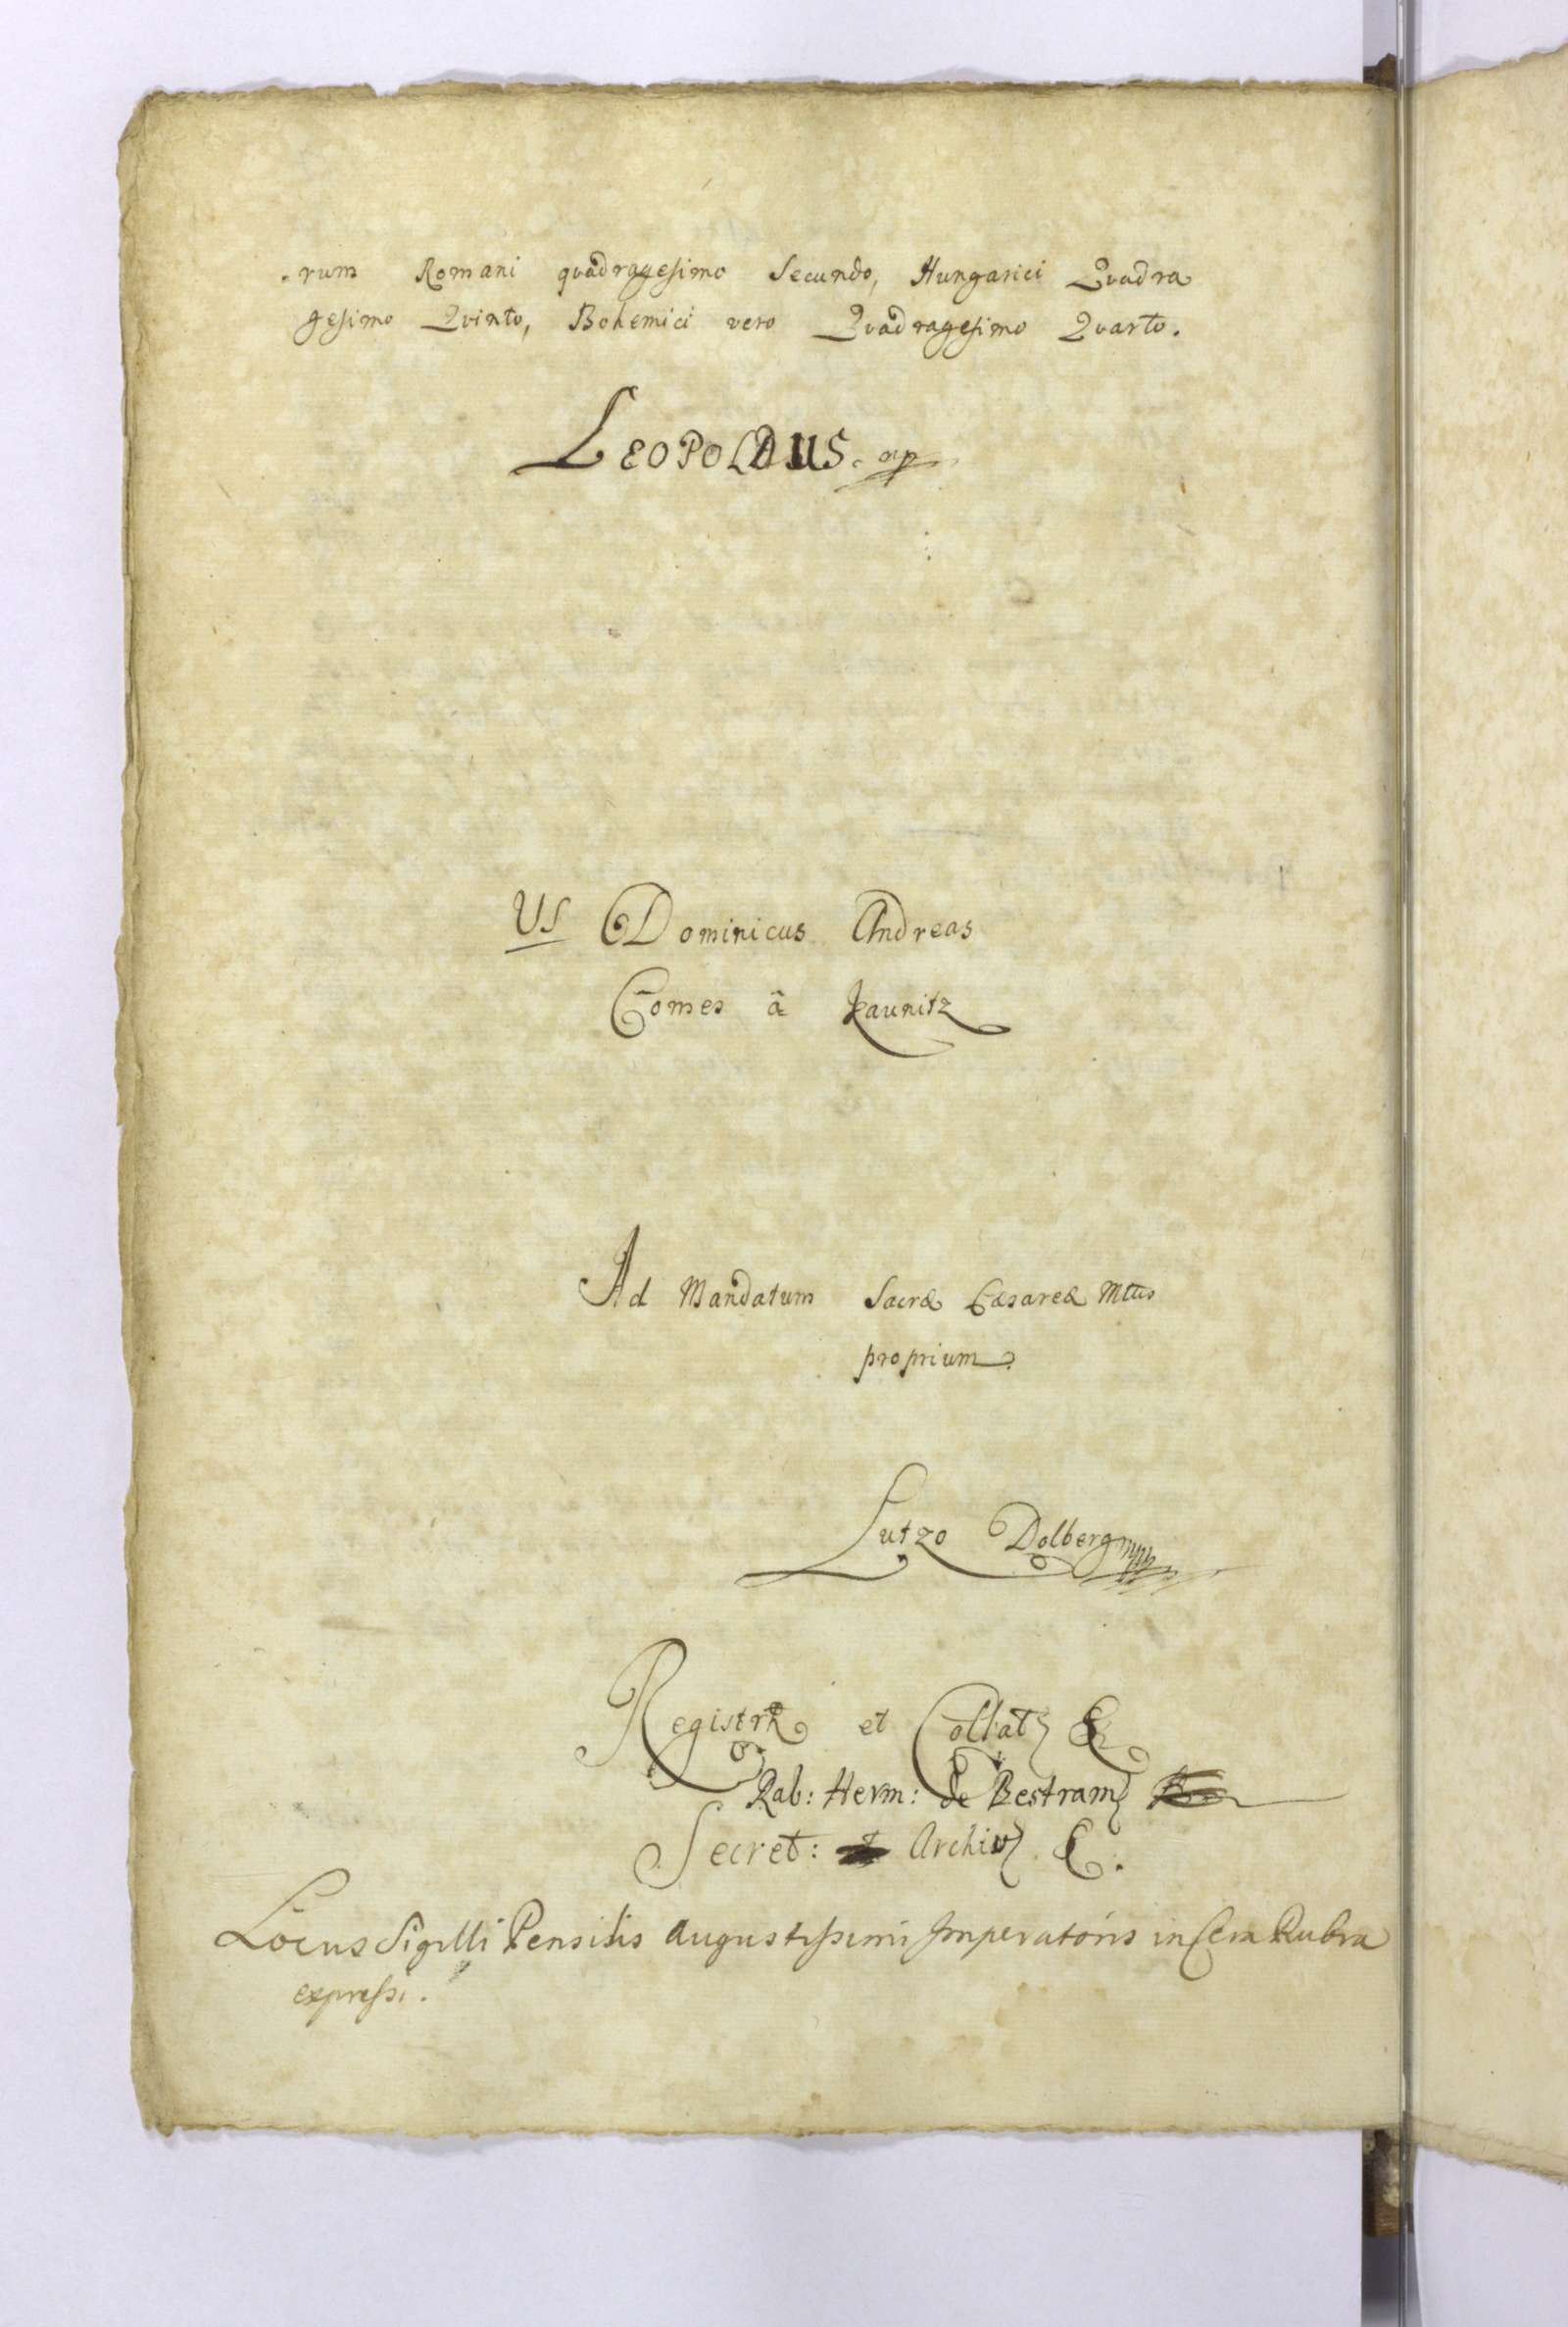 rum Romani quadragesimo Secundo, Hungarici Quadra
gesimo Quinto, Bohemici vero Quadragesimo Quarto.
LEOPOLDUS. mp
Vt Dominicus Andreas
Comes â Kaunitz
Ad Mandatum Sacræ Cæsareæ Mttis
proprium
Lutzo Dolberg
Registr et Collat
Rab: Herm: de Bestram
Secret: Archiv
Locus Sigilli Pensilis Augustissimi Imperatoris in Cera Rubra
expressi.